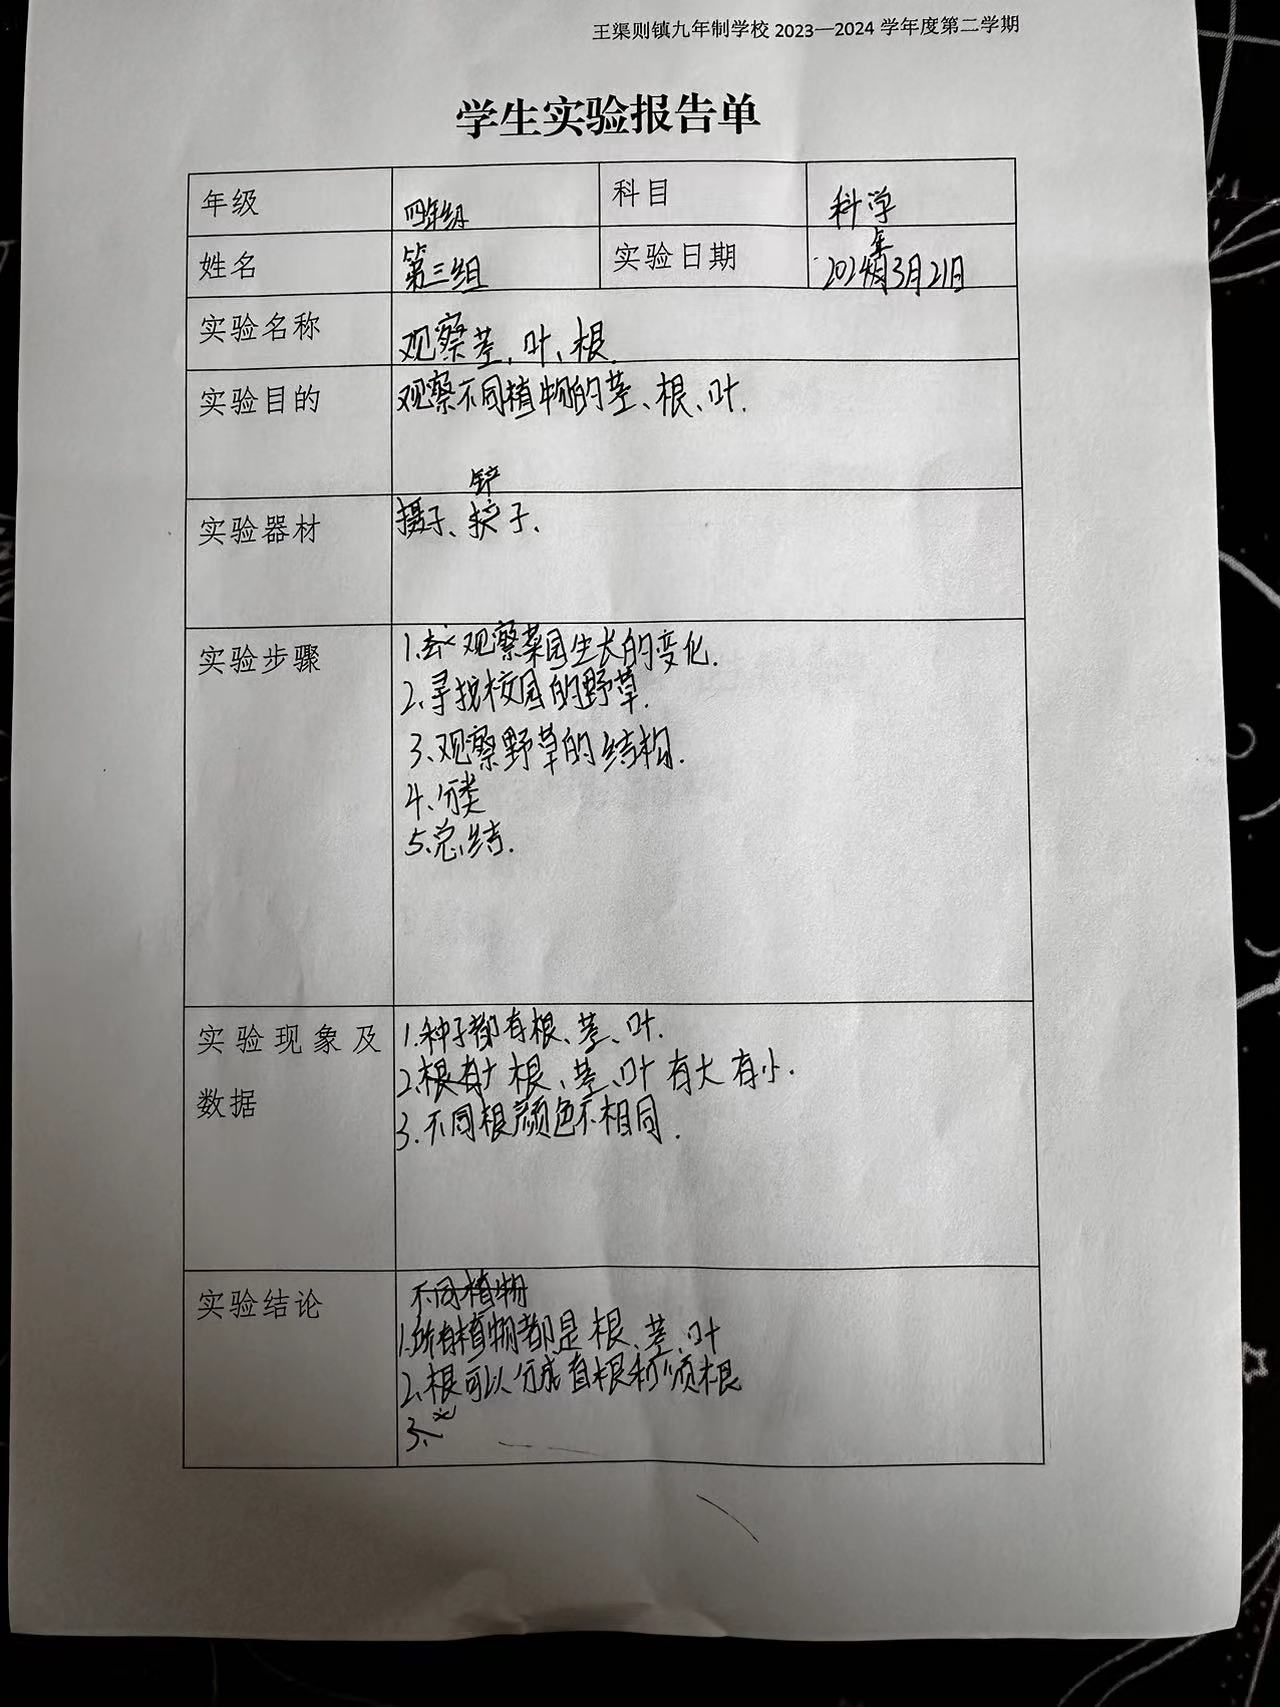 王渠则镇九年制学校 2023—2024 学年度第二学期
学生实验报告单
年级 四年级 科目 科学
姓名 第三组 实验日期 2024年3月21日
实验名称 观察茎、叶、根.
实验目的 观察不同植物的茎、根、叶.
铲
实验器材 摄子、子.
实验步骤 1.去观察菜园生长的变化.
2.寻找校园的野草.
3.观察野草的结构.
4.分类
5.总结.
实验现象及 1.种子都有根、茎、叶.
2.根、茎、叶有大有小.
数据 3.不同根颜色不相同.
不同植物
实验结论 1.所有植物都是根、茎、叶
2.根可以分成直根和须根
3、